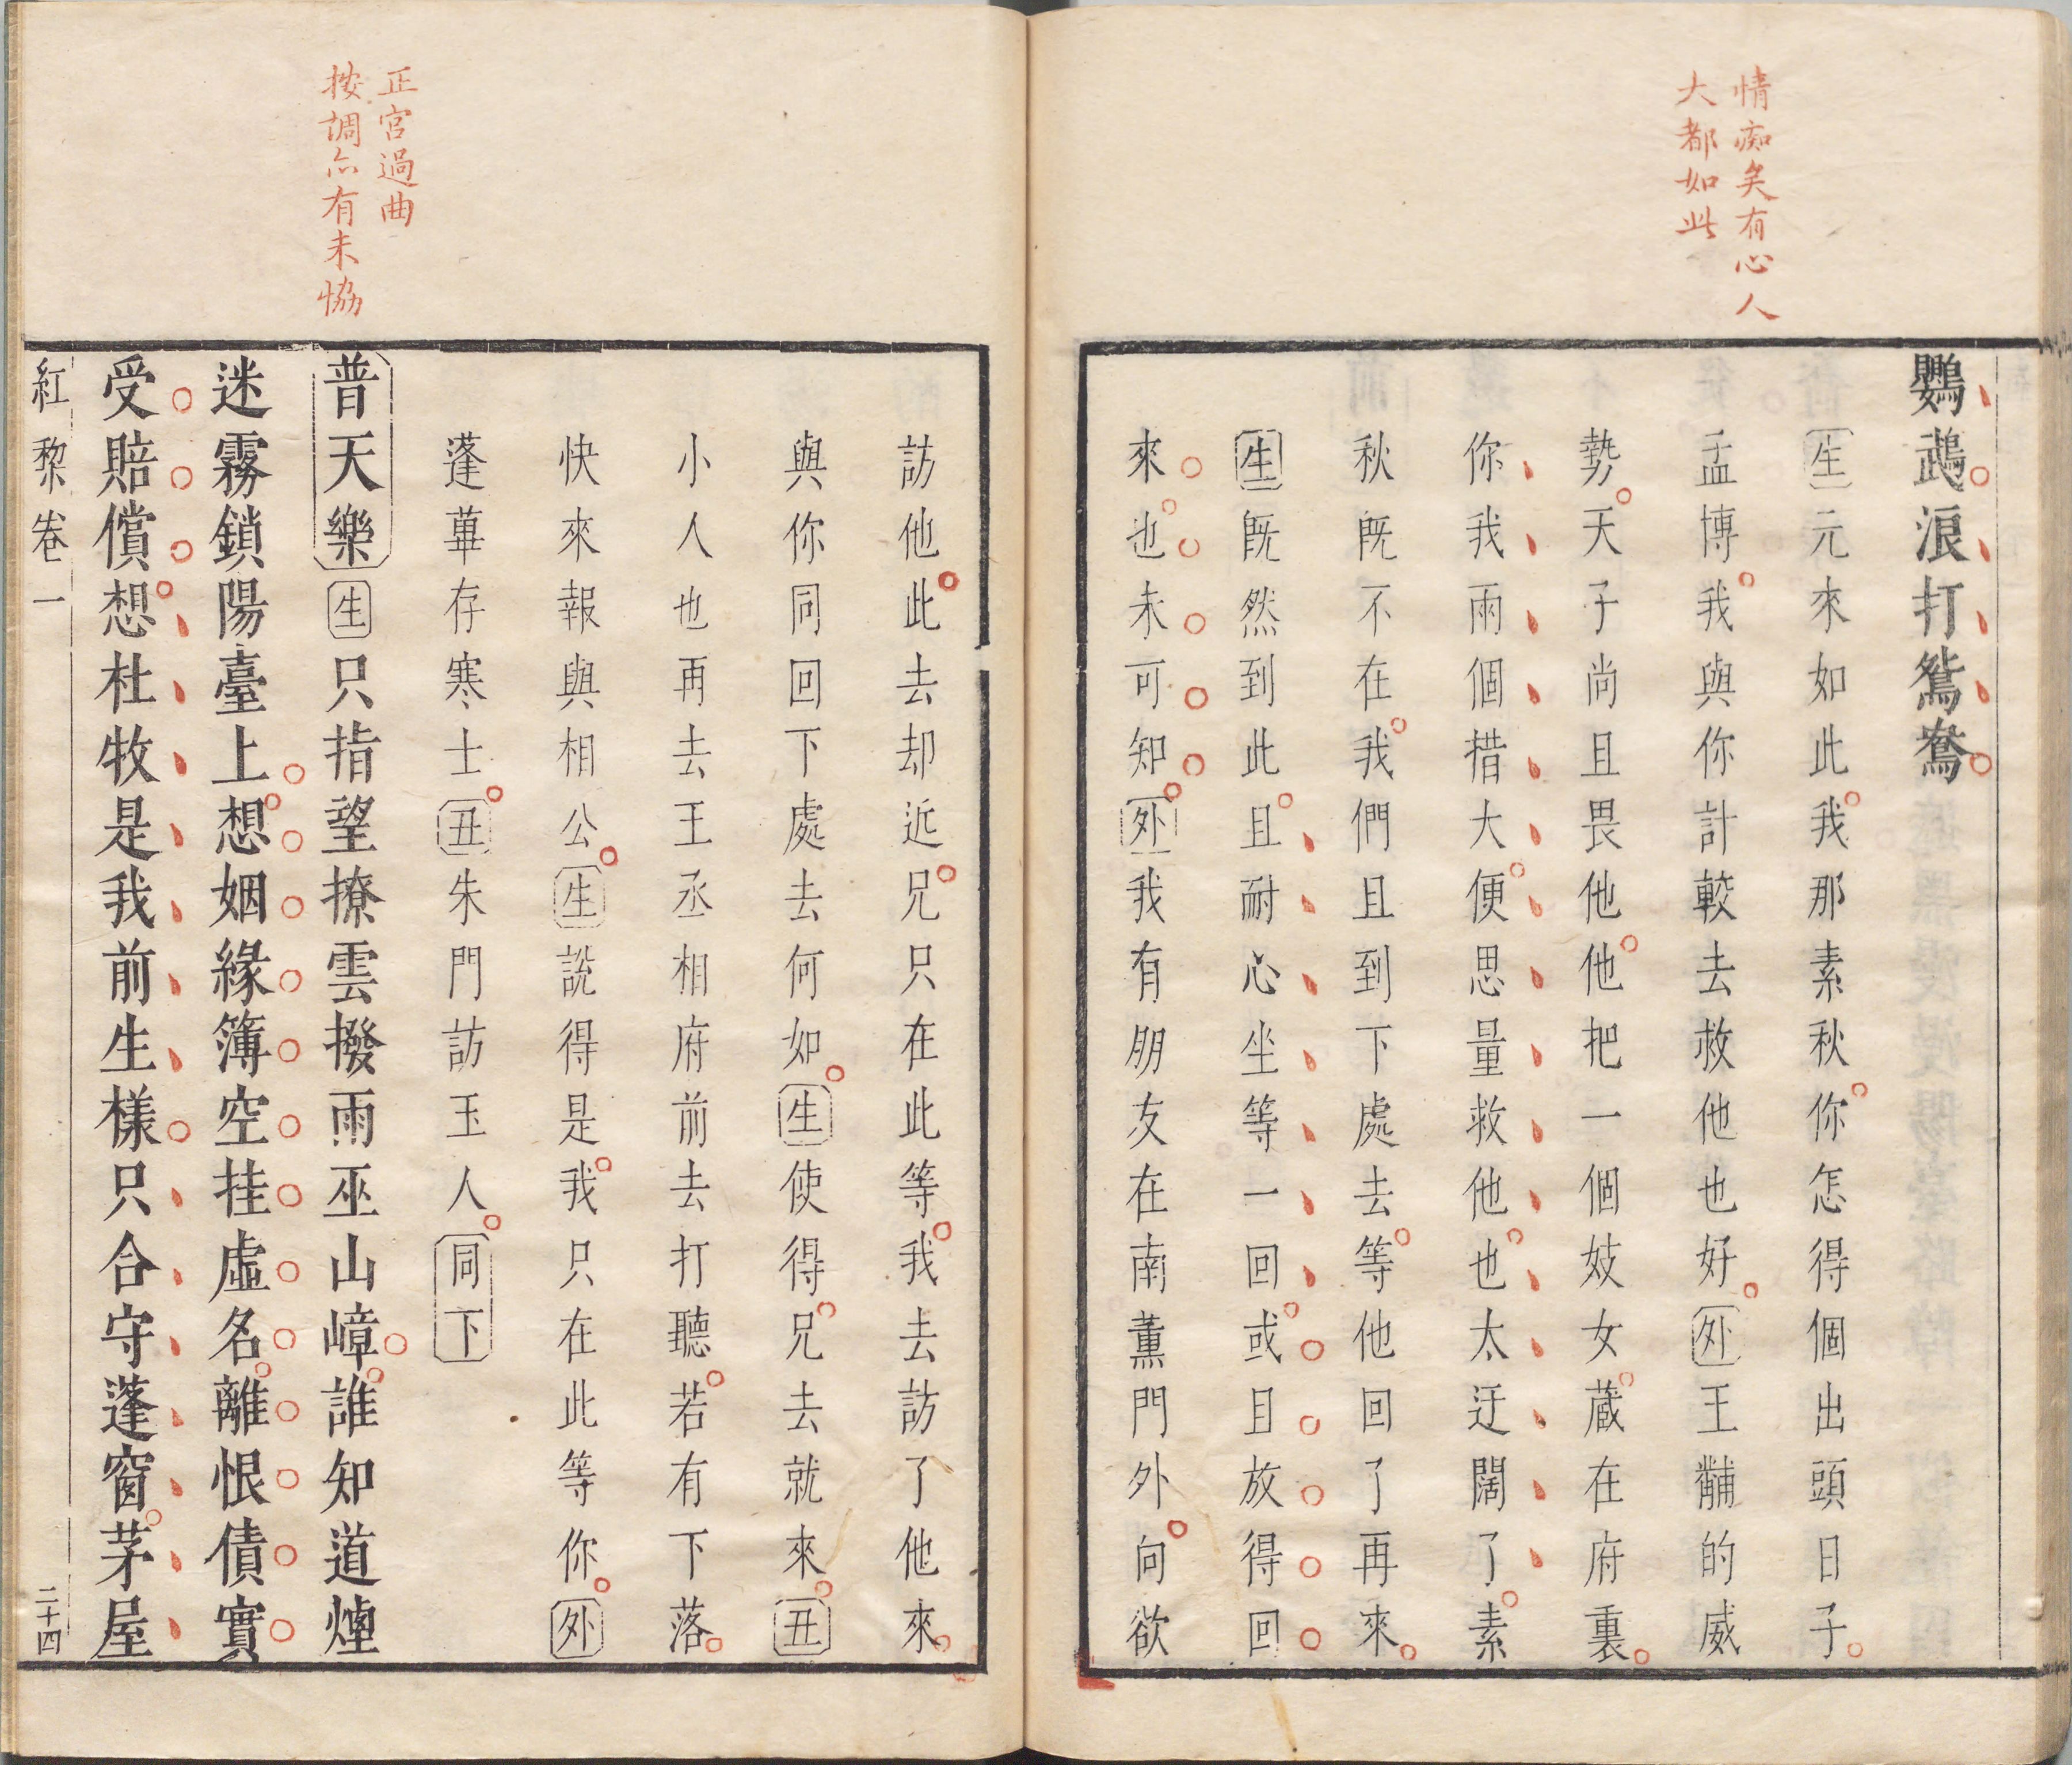 情痴矣有心人
大都如此
鸚鵡浪打鴛鴦
生元來如此我那素秋你怎得個出頭日子
孟博我與你計較去救他也好外王黼的威
勢天子尚且畏他他把一個妓女藏在府裏
你我兩個措大便思量救他也太迂闊了素
秋旣不在我們且到下處去等他回了再來
生旣然到此且耐心坐等一回或且放得回
來也未可知外我有朋友在南薰門外向欲
正宮過曲
按調亦有未恊
訪他此去却近兄只在此等我去訪了他來
與你同回下處去何如生使得兄去就來丑
小人也再去王丞相府前去打聽若有下落
快來報與相公生說得是我只在此等你外
蓬蓽存寒士丑朱門訪玉人同下
普天樂生只指望撩雲撥雨巫山嶂誰知道煙
迷霧鎖陽臺上想姻緣簿空挂虛名離恨債實
受賠償想杜牧是我前生樣只合守蓬窗茅屋
紅梨卷一
二十四